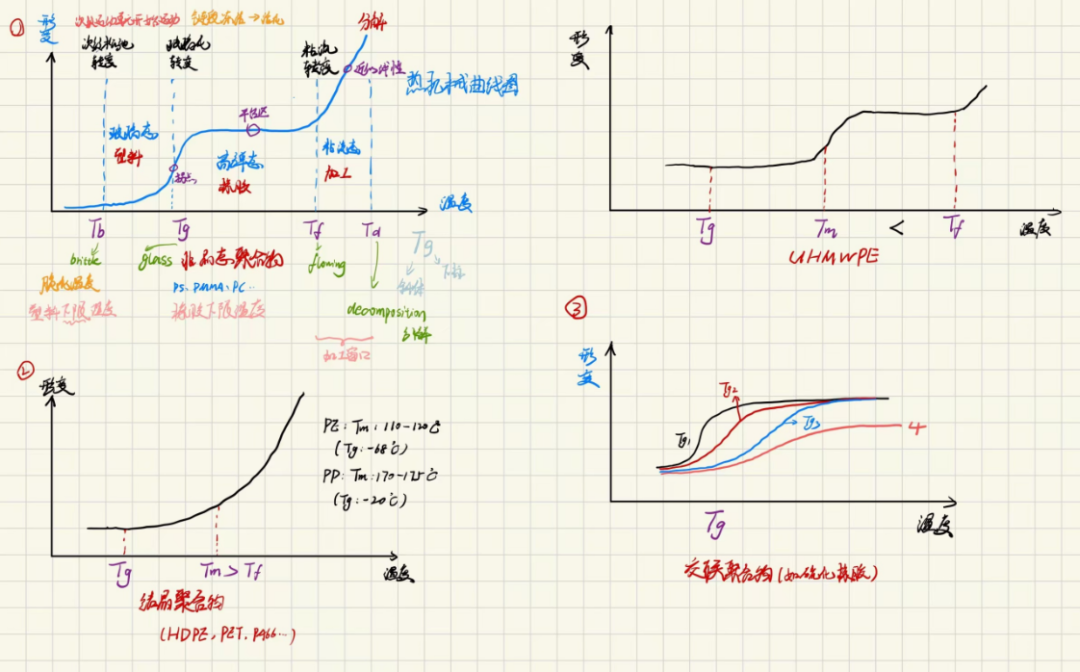 ①
形变
次级转变
转变
玻璃化
转变
粘流
转变
分解
近似线性
热机械曲线图
平台区
玻璃态
塑料
拐点
高弹态
橡胶
粘流态
加工
温度
Tb
Tg
Tf
Td
brittle
glass
非晶态聚合物
flowing
Tg
脆化温度
PS、PMMA、PC…
塑料下限温度
橡胶下限温度
decomposition
分解
加工窗口
形变
Tg
Tm
<
Tf
温度
UHMWPE
②
形变
PE: Tm: 110-120℃
(Tg: -68℃)
PP: Tm: 170-175℃
(Tg: -20℃)
Tg
Tm > Tf
温度
结晶聚合物
(HDPE、PET、PA66…)
③
形变
Tg1
Tg2
Tg3
4
Tg
温度
交联聚合物(如硫化橡胶)